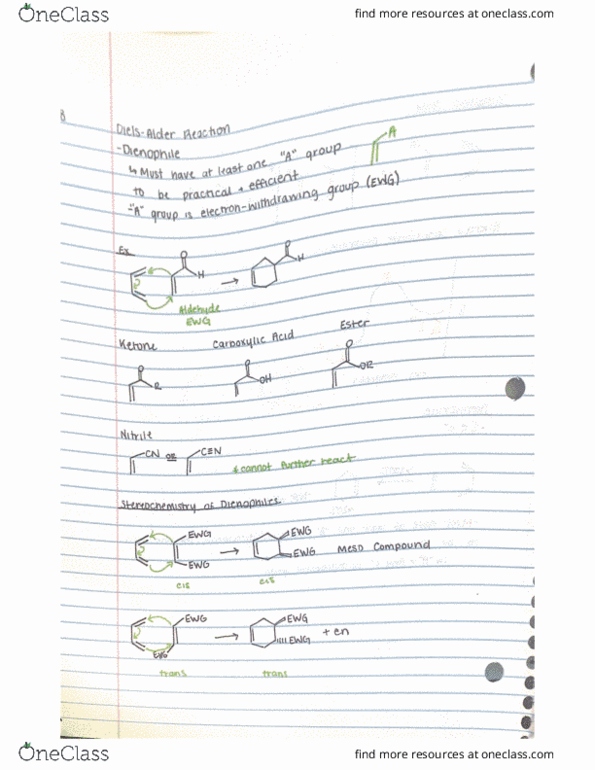 OneClass
find more resources at oneclass.com
Diels-Alder Reaction
-Dienophile
↳ Must have at least one "A" group
to be practical + efficient
-"A" group is electron-withdrawing group (EWG)
A
Ex
O
H
O
H
Aldehyde
EWG
Ketone
Carboxylic Acid
Ester
O
R
O
OH
O
OR
Nitrile
CN or C≡N
cannot further react
Stereochemistry of Dienophiles
EWG
EWG
EWG
EWG
Meso Compound
cis
cis
EWG
EWG
EWG
EWG
+ en
trans
trans
OneClass
find more resources at oneclass.com